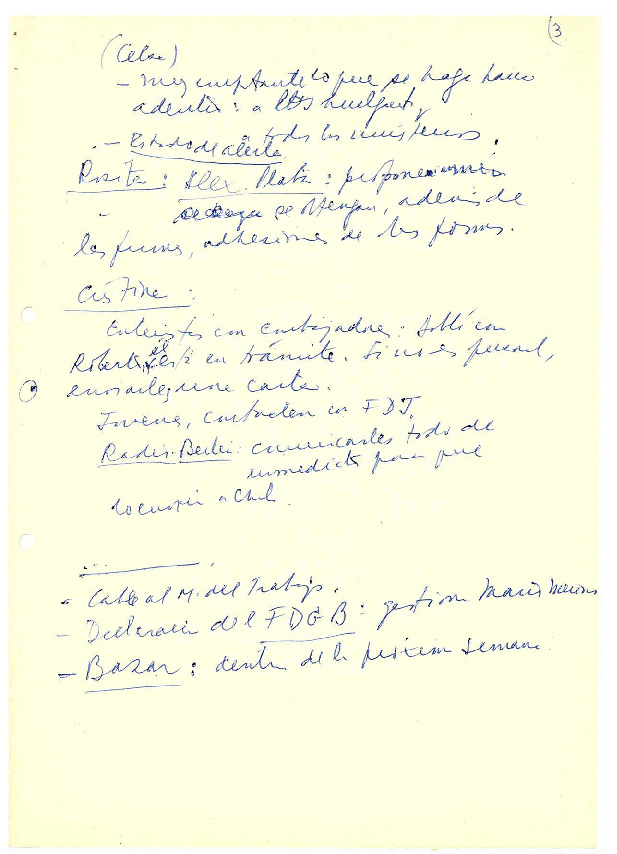 (3
(Celsa)
- muy importante lo que se haga hacia
adentro: a los huelguistas,
. - Estado de alerta a todos los ministerios.
Rosita: Alex. Plata: propone
- se obtengan, además de
las firmas, adhesiones de las forms.
Cristina:
Entrevistas con Embajadores: habló con
Roberto, él está en trámite. Si no es personal,
enviarles una carta.
Jóvenes, contacten con FDJ.
Radio Berlin: comunicarles todo de
inmediato para que
lo envíen a Chile.
...
- Cable al M. del Trabajo.
- Declaración del FDGB: gestiona Mario
- Bazar: dentro de la próxima semana.